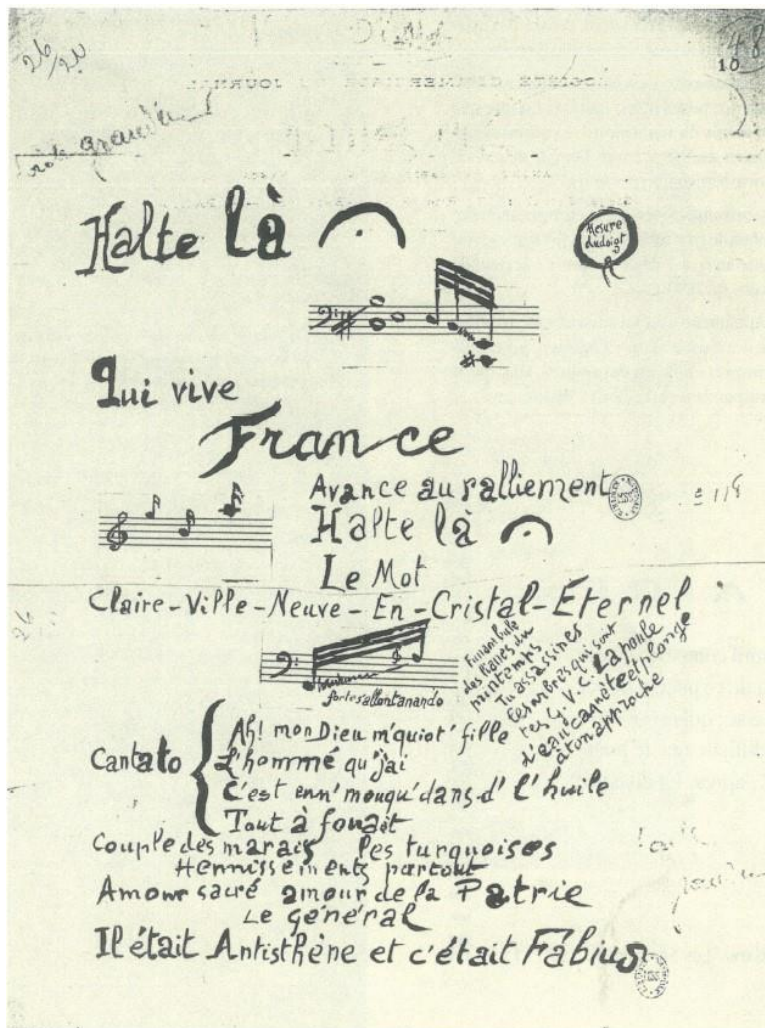 26/20
48
10
Halte là
Mesure
du doigt
Qui vive
France
Avance au ralliement
Halte là
Le Mot
Claire-Ville-Neuve-En-Cristal-Éternel
fortes allontanando
Funambule
des lianes du
printemps
Tu assassines
les arbres qui sont
tes G.V.C. La poule
d'eau caquète et plonge
à ton approche
Cantato
Ah! mon Dieu m'quiot' fille
L'hommé qu'j'ai
C'est enn' mouqu' dans d' l'huile
Tout à fouait
Couple des marais les turquoises
Hennissements partout
Amour sacré amour de la Patrie
Le général
Il était Antisthène et c'était Fabius